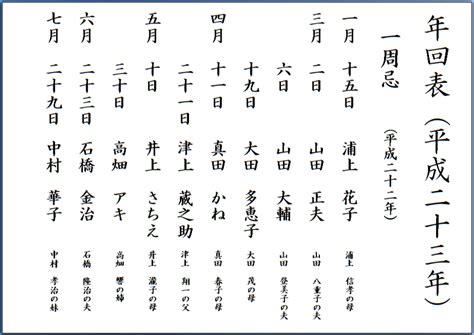 年回表（平成二十三年）
一周忌
（平成二十二年）
一月 十五日 浦上 花子 浦上 信孝の母
三月 二日 山田 正夫 山田 八重子の夫
六日 山田 大輔 山田 登美子の夫
十九日 太田 多恵子 太田 茂の母
四月 十一日 真田 かね 真田 春子の母
二十一日 津上 蔵之助 津上 翔一の父
五月 十日 井上 さちえ 井上 瀧子の母
三十日 高畑 アキ 高畑 響の姉
六月 二十三日 石橋 金治 石橋 隆治の夫
七月 二十九日 中村 華子 中村 孝治の妹